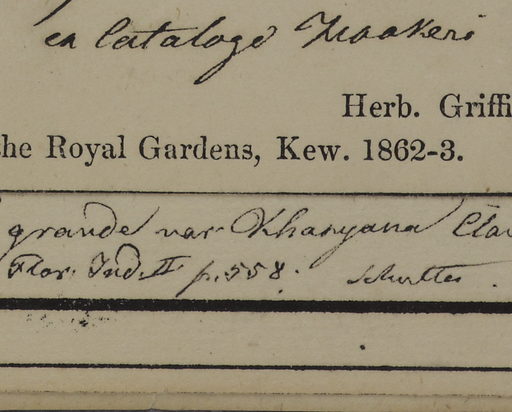 ex Catalogo Hookeri
Herb. Griffi
the Royal Gardens, Kew. 1862-3.
grande var Khasyana Clar
Flor. Ind. II p. 558.